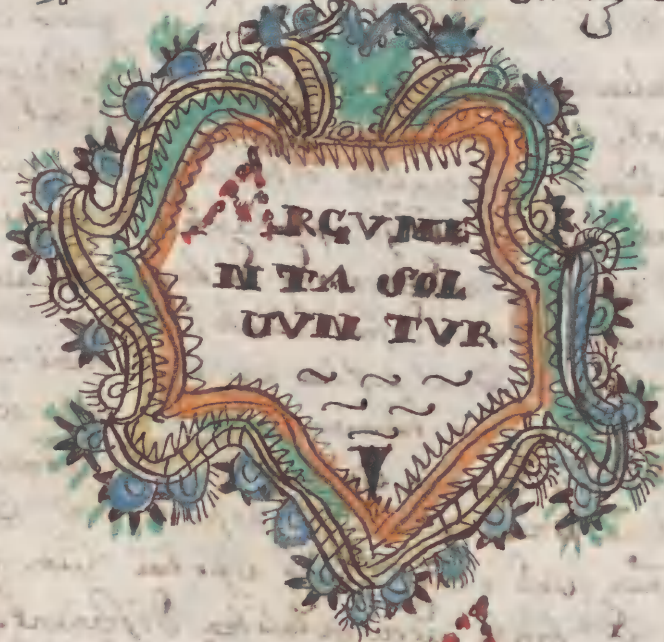 ARGVME
NTA SOL
UVN TVR